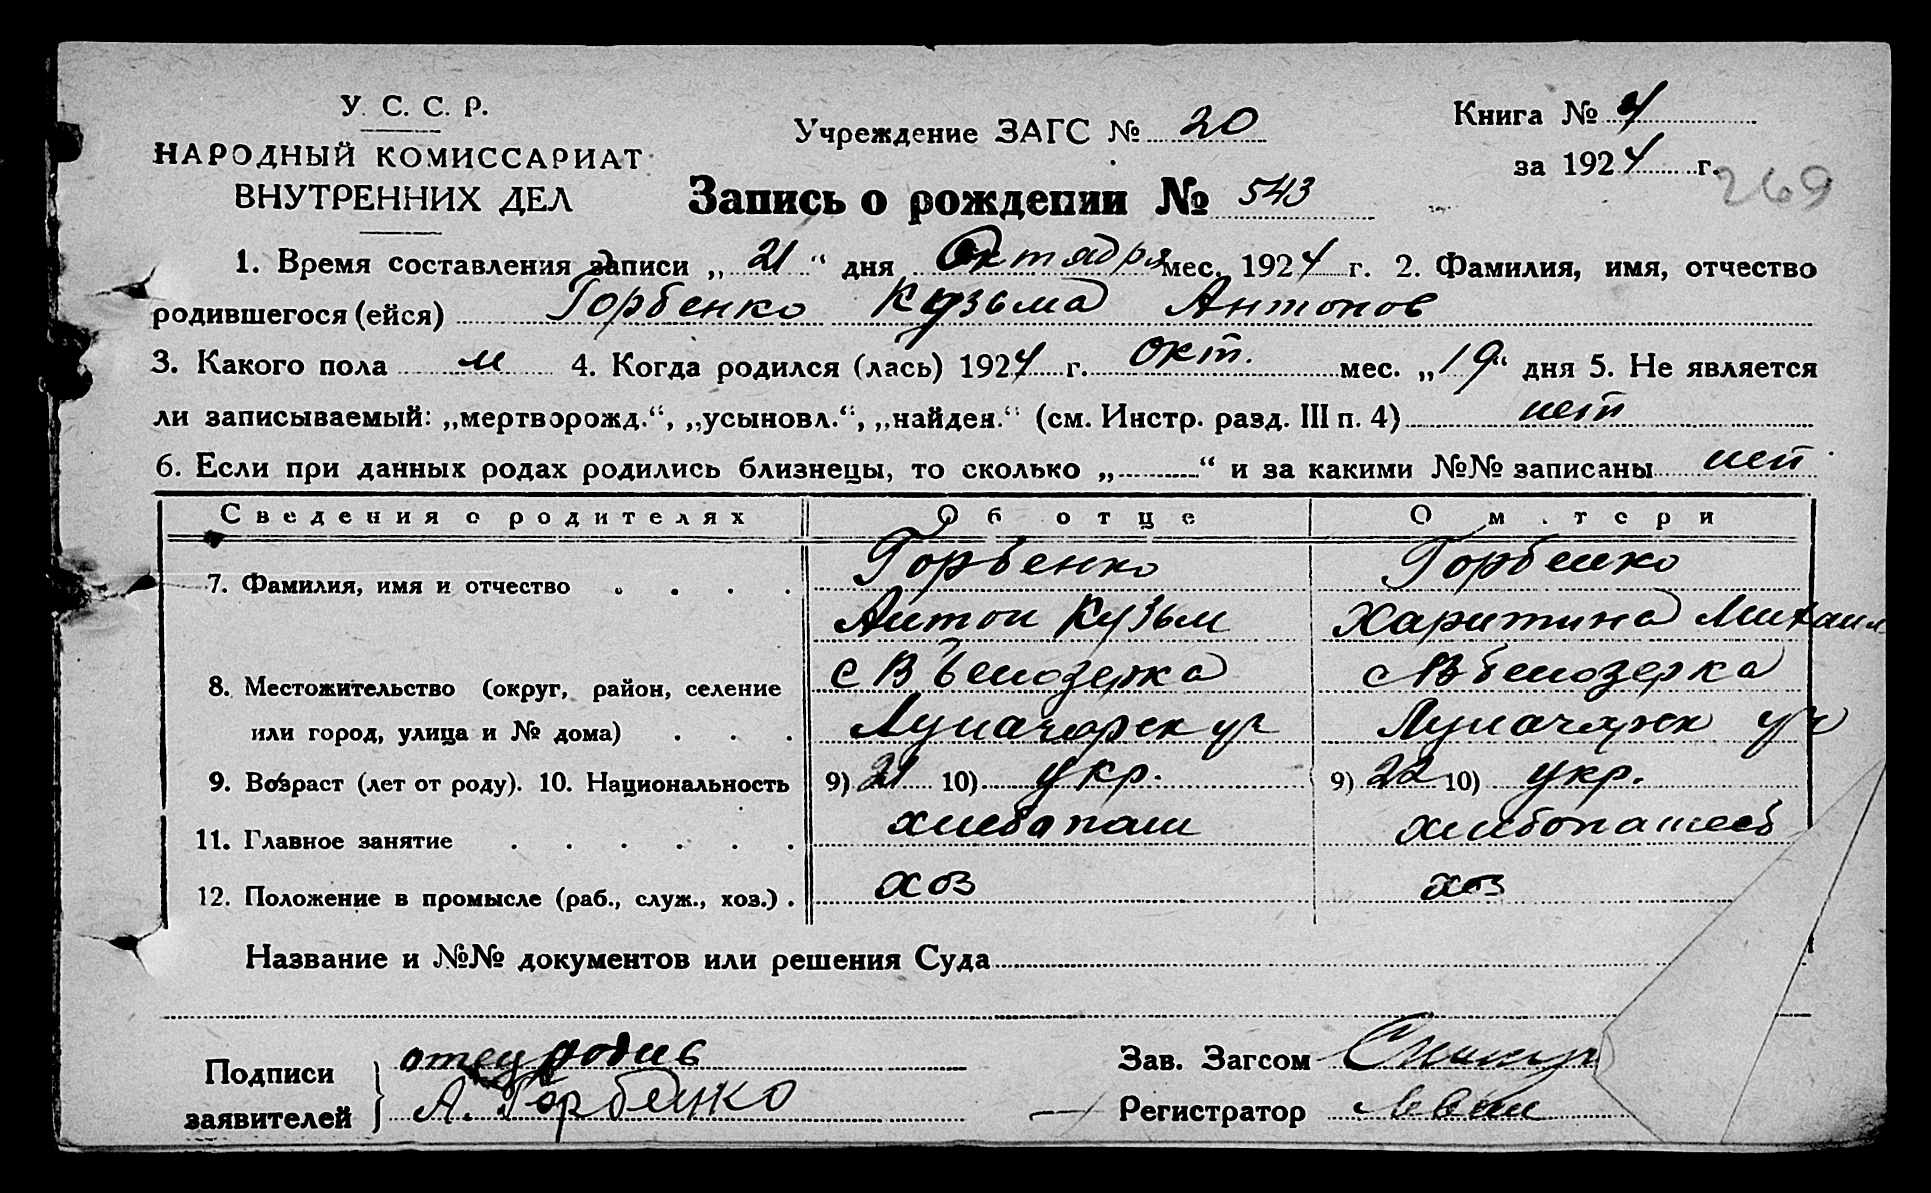 У. С. С. Р.
НАРОДНЫЙ КОМИССАРИАТ
ВНУТРЕННИХ ДЕЛ
Учреждение ЗАГС № 20
Книга № 4
за 1924 г.
269
Запись о рождении № 543
1. Время составления записи „21“ дня Октября мес. 1924 г. 2. Фамилия, имя, отчество
родившегося (ейся) Горбенко Кузьма Антонов
3. Какого пола м 4. Когда родился (лась) 1924 г. окт. мес. „19“ дня 5. Не является
ли записываемый: „мертворожд.“, „усыновл.“, „найден.“ (см. Инстр. разд. III п. 4) нет
6. Если при данных родах родились близнецы, то сколько „ “ и за какими №№ записаны нет
Сведения о родителях Об отце О м.тери
7. Фамилия, имя и отчество Горбенко Горбенко
Антон Кузьм Харитина Михаил
8. Местожительство (округ, район, селение с В Белозерка с В Белозерка
или город, улица и № дома) Луначарск ул Луначарск ул
9. Возраст (лет от роду). 10. Национальность 9) 21 10) укр. 9) 22 10) укр.
11. Главное занятие хлебопаш хлебопашеств
12. Положение в промысле (раб., служ., хоз.) хоз хоз
Название и №№ документов или решения Суда
Подписи заявителей отец
А. Горбенко
Зав. Загсом
Регистратор